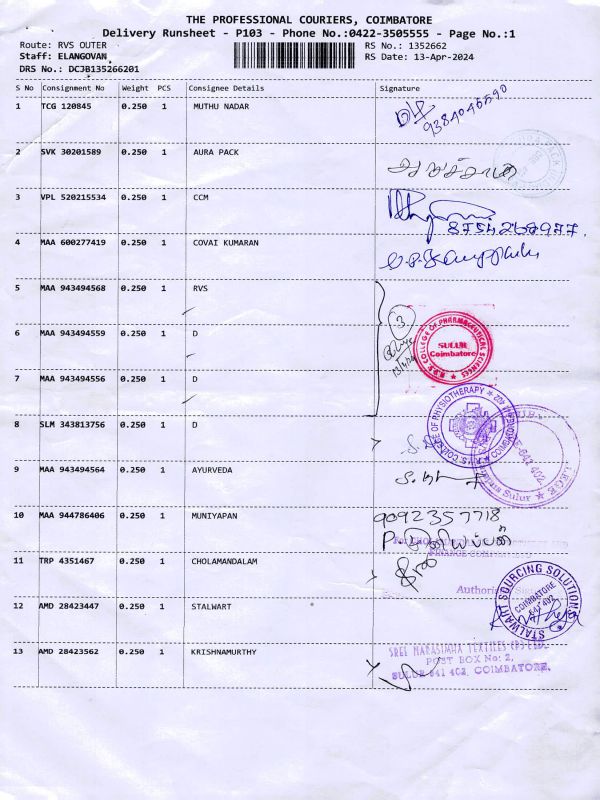 THE PROFESSIONAL COURIERS, COIMBATORE
Delivery Runsheet - P103 - Phone No.:0422-3505555 - Page No.:1
Route: RVS OUTER RS No.: 1352662
Staff: ELANGOVAN RS Date: 13-Apr-2024
DRS No.: DCJB135266201
S No Consignment No Weight PCS Consignee Details Signature
1 TCG 120845 0.250 1 MUTHU NADAR
2 SVK 30201589 0.250 1 AURA PACK
3 VPL 520215534 0.250 1 CCM
8754268977
4 MAA 600277419 0.250 1 COVAI KUMARAN
5 MAA 943494568 0.250 1 RVS
3
6 MAA 943494559 0.250 1 D
R.V.S. COLLEGE OF PHARMACEUTICAL SCIENCES
SULUR
Coimbatore
7 MAA 943494556 0.250 1 D
8 SLM 343813756 0.250 1 D
R.V.S. COLLEGE OF PHYSIOTHERAPY
Sulur
9 MAA 943494564 0.250 1 AYURVEDA
10 MAA 944786406 0.250 1 MUNIYAPAN
9092357718
P. முனியப்பன்
11 TRP 4351467 0.250 1 CHOLAMANDALAM
12 AMD 28423447 0.250 1 STALWART
STALWART SOURCING SOLUTIONS
COIMBATORE
641 402
13 AMD 28423562 0.250 1 KRISHNAMURTHY
SREE NARASIMHA TEXTILES (P) LTD.
POST BOX No: 2,
SULUR 641 402, COIMBATORE.